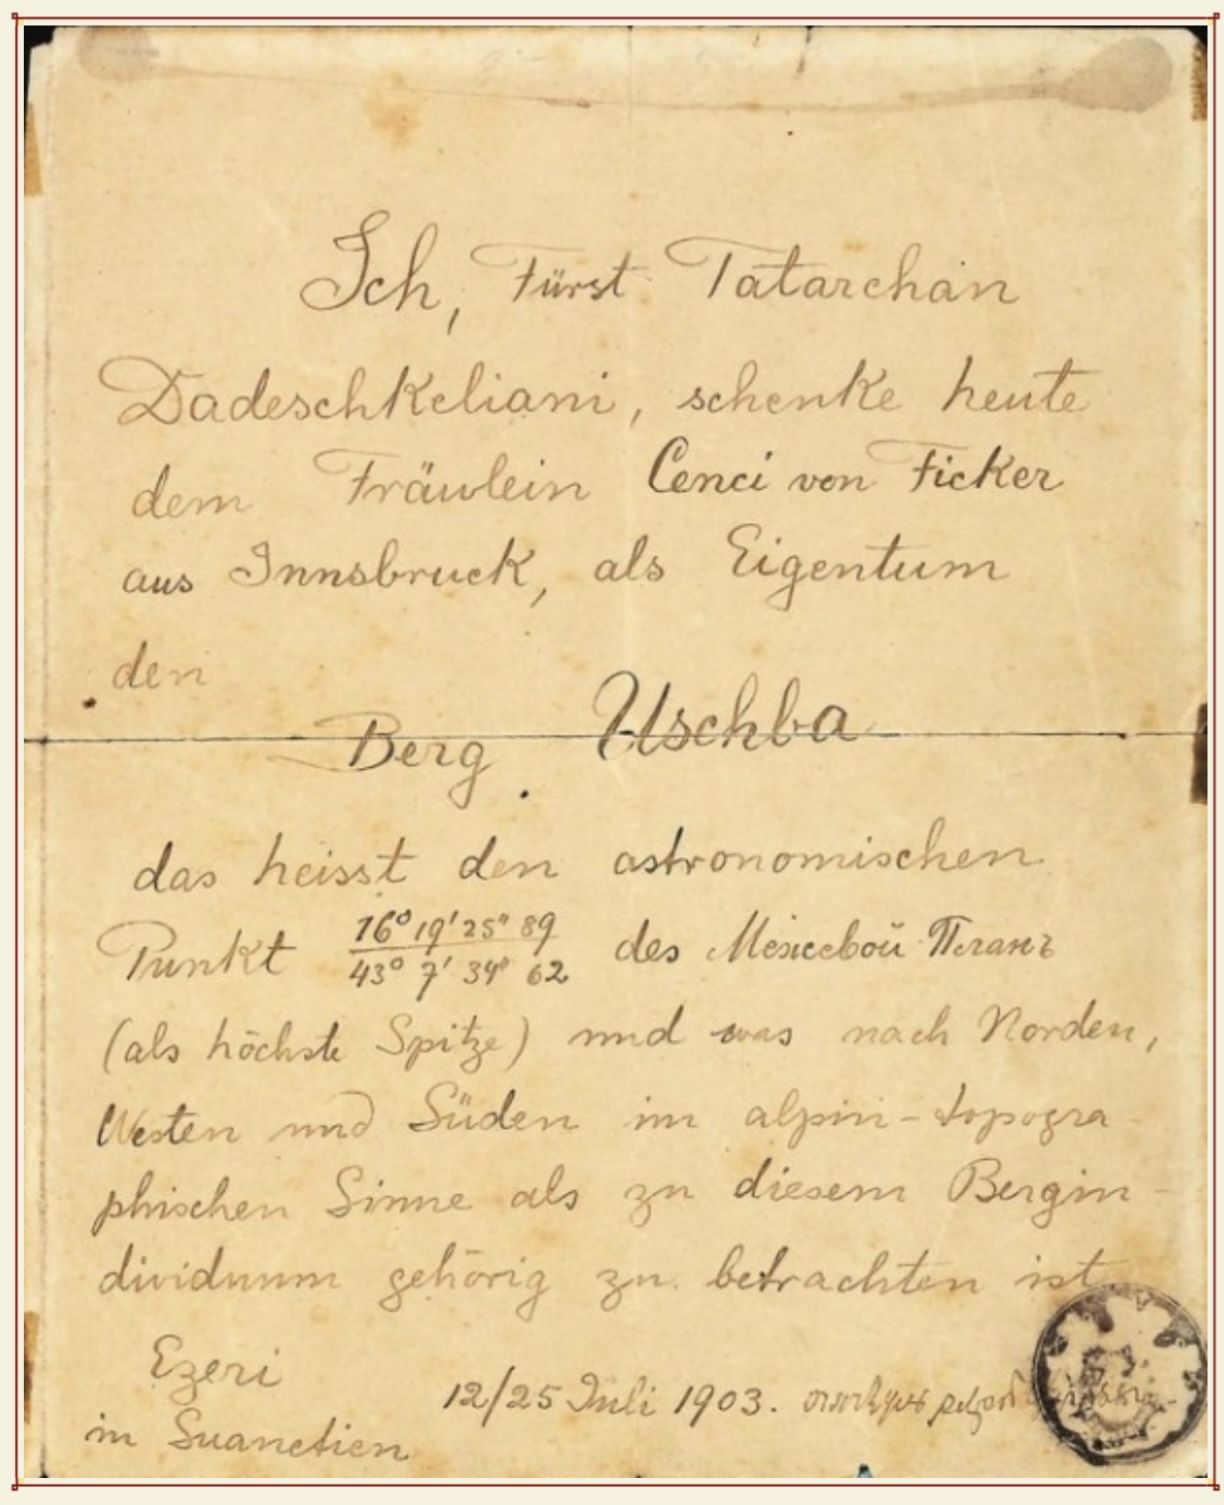 Ich, Fürst Tatarchan
Dadeschkeliani, schenke heute
dem Fräulein Cenci von Ficker
aus Innsbruck, als Eigentum
den
Berg Uschba
das heisst den astronomischen
Punkt 16° 19' 25" 89 des
43° 7' 34" 62
(als höchste Spitze) und was nach Norden,
Westen und Süden im alpin-topogra
phischen Sinne als zu diesem Bergin-
dividuum gehörig zu betrachten ist.
Ezeri
12/25 Juli 1903.
in Suanetien